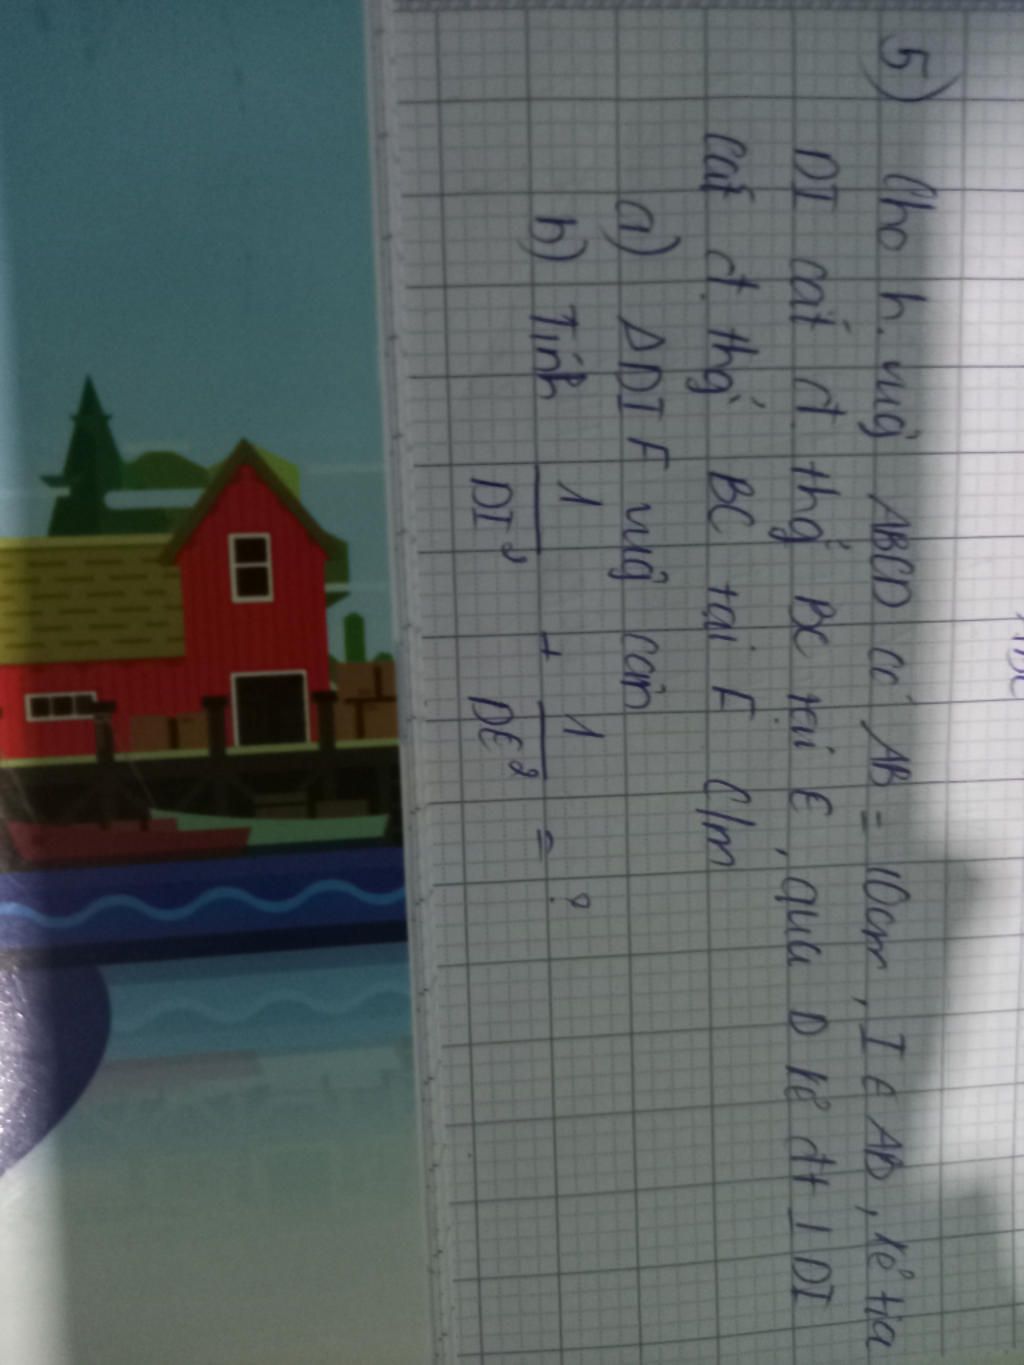 ABC
5) Cho h. vug ABCD có AB = 10cm, I ∈ AB, kẻ tia
DI cắt đ. thg BC tại E, qua D kẻ đt ⊥ DI
cắt đ. thg BC tại F C/m
a) Δ DIF vug cân
b) Tính 1/DI² + 1/DE² = ?